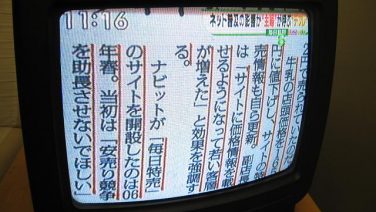 11:16
ネット普及の影響か"主婦"が見の
円で売られていたため
牛乳の店頭価格を１６
円に値下げし、サイトの特
売情報も自ら更新。副店長
は「サイトに価格情報を載
せるようになって若い客層
が増えた」と効果を強調す
る。
ナビットが「毎日特売」
のサイトを開設したのは06
年春。当初は「安売り競争
を助長させないでほしい」